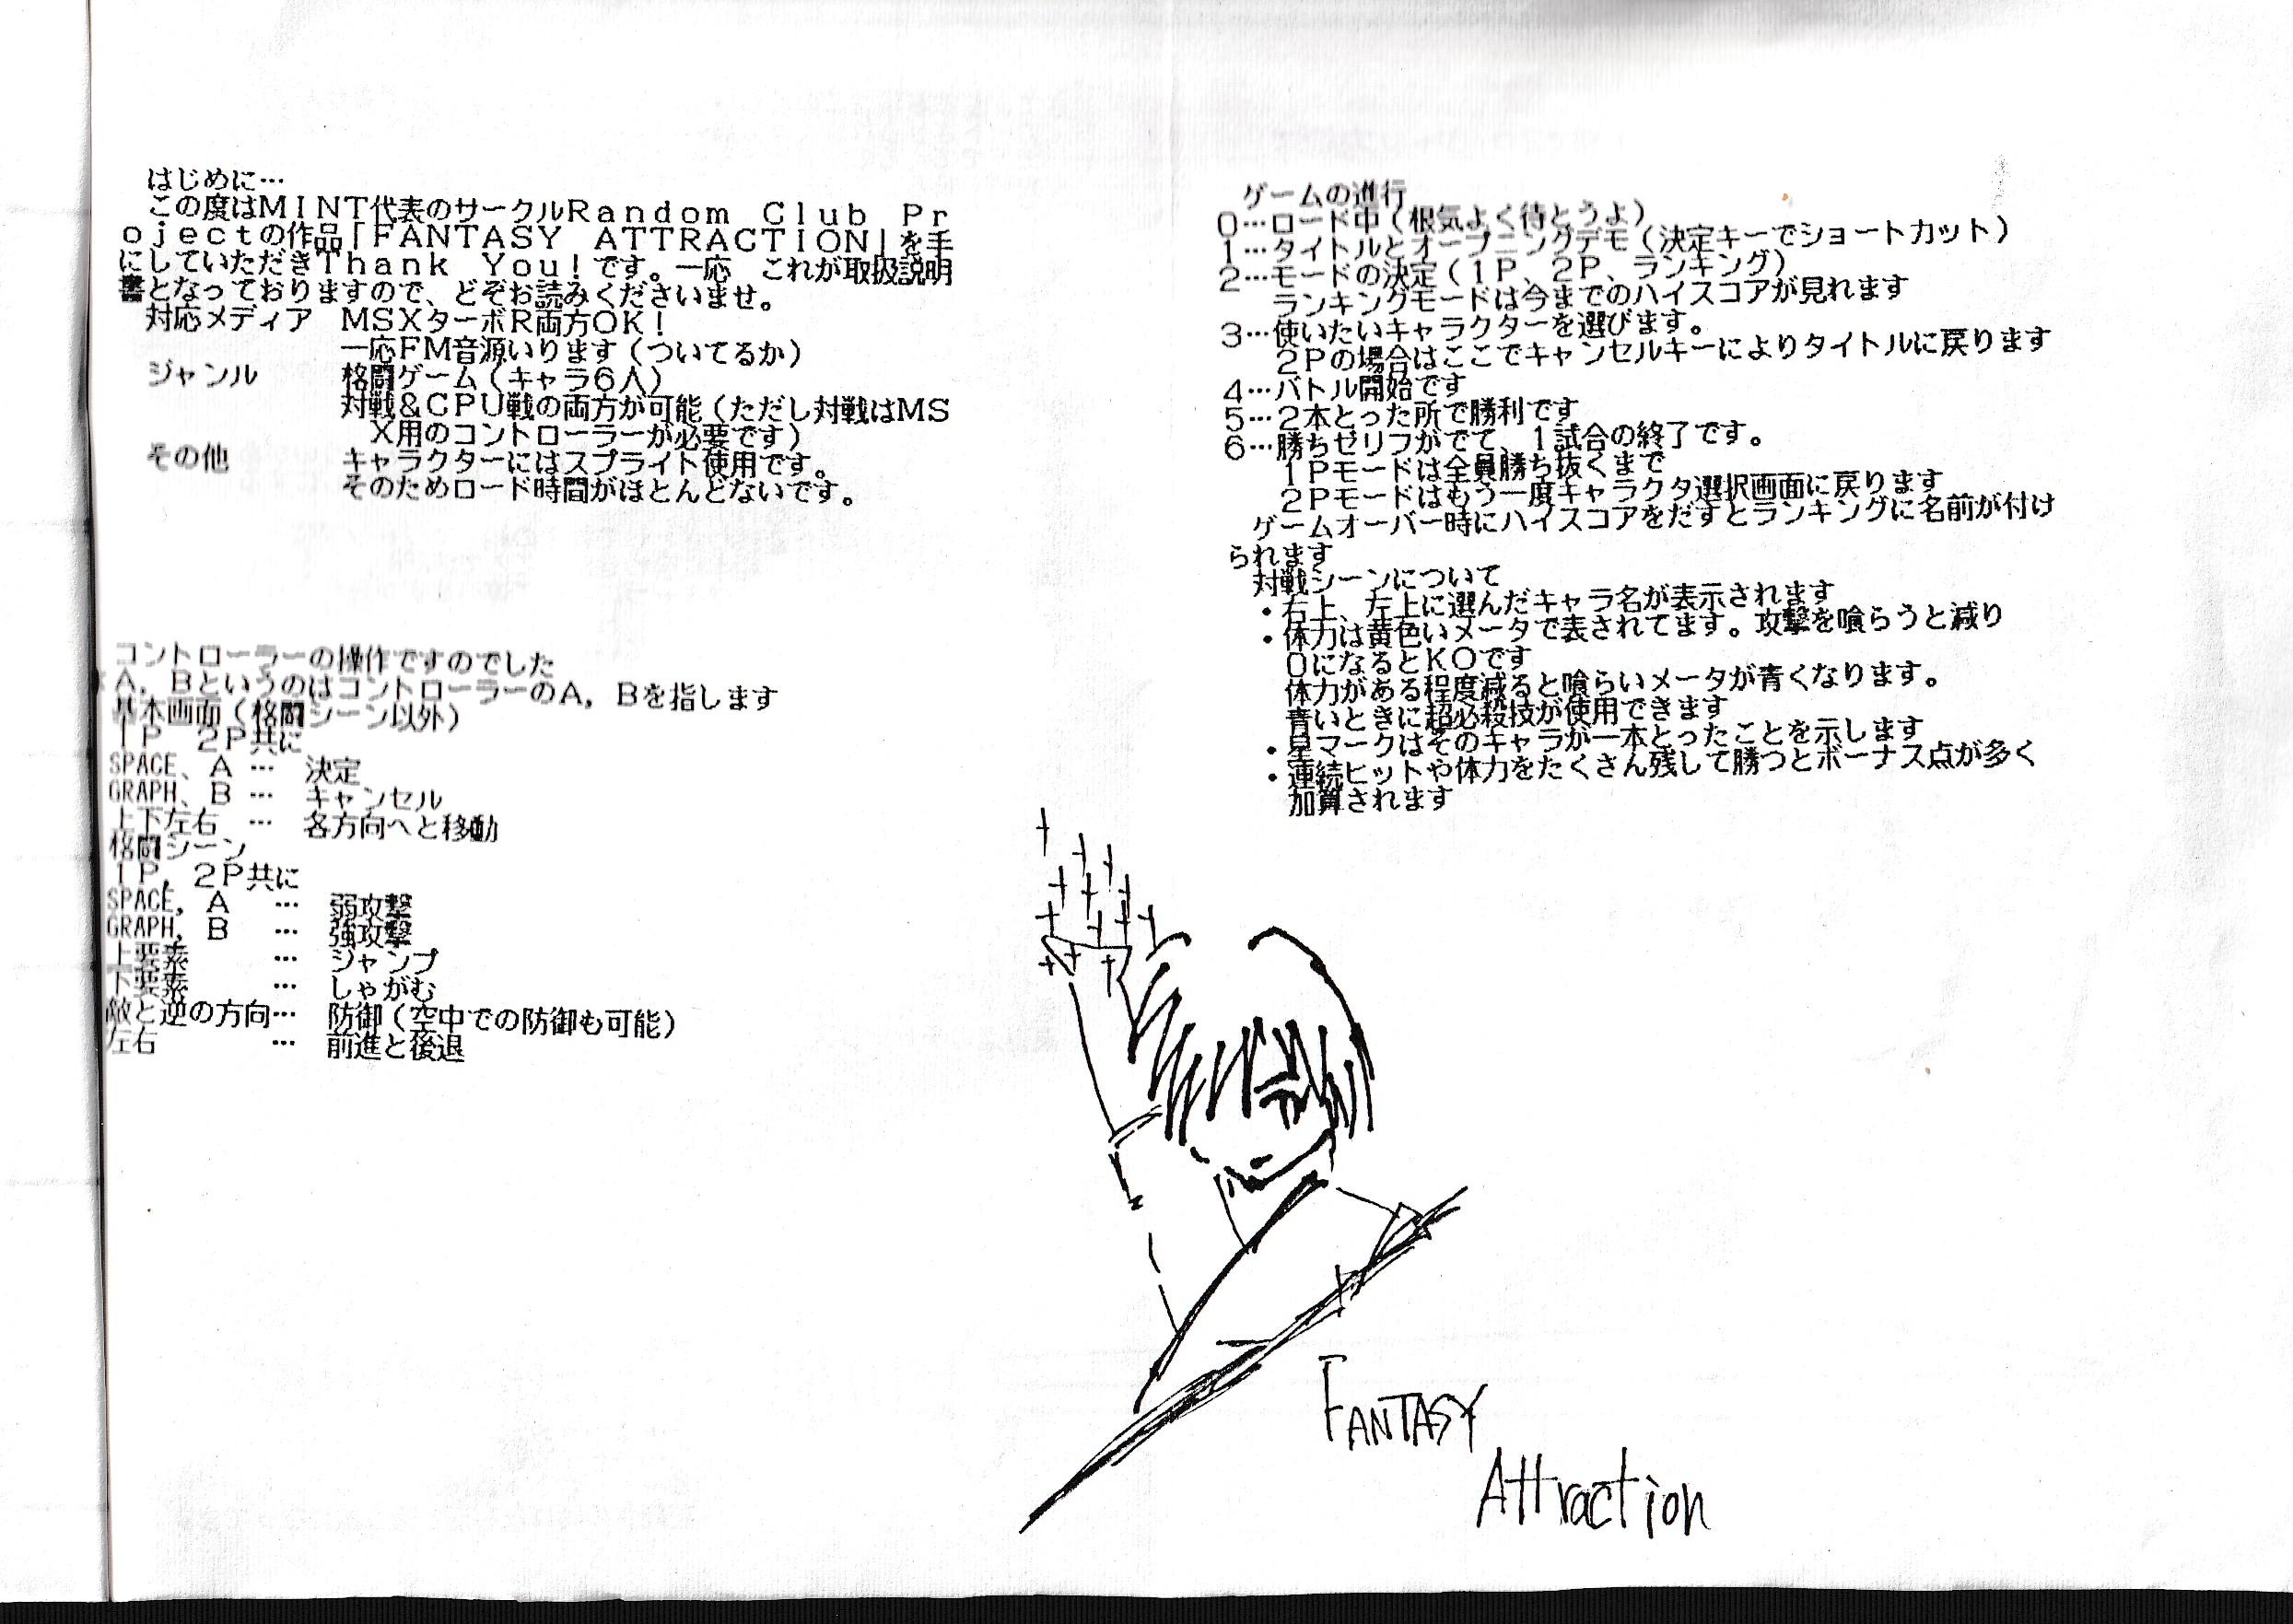 はじめに…
この度はMINT代表のサークルRandom Club Pr
ojectの作品「FANTASY ATTRACTION」を手
にしていただきThank You!です。一応 これが取扱説明
書となっておりますので、どぞお読みくださいませ。
対応メディア MSXターボR両方OK!
一応FM音源いります(ついてるか)
ジャンル 格闘ゲーム(キャラ6人)
対戦&CPU戦の両方が可能(ただし対戦はMS
X用のコントローラーが必要です)
その他 キャラクターにはスプライト使用です。
そのためロード時間がほとんどないです。
コントローラーの操作ですのでした
A, BというのはコントローラーのA, Bを指します
基本画面(格闘シーン以外)
1P 2P共に
SPACE、A … 決定
GRAPH、B … キャンセル
上下左右 … 各方向へと移動
格闘シーン
1P, 2P共に
SPACE, A … 弱攻撃
GRAPH, B … 強攻撃
上要素 … ジャンプ
下要素 … しゃがむ
敵と逆の方向… 防御(空中での防御も可能)
左右 … 前進と後退
ゲームの進行
0…ロード中(根気よく待とうよ)
1…タイトルとオープニングデモ(決定キーでショートカット)
2…モードの決定(1P、2P、ランキング)
ランキングモードは今までのハイスコアが見れます
3…使いたいキャラクターを選びます。
2Pの場合はここでキャンセルキーによりタイトルに戻ります
4…バトル開始です
5…2本とった所で勝利です
6…勝ちゼリフがでて、1試合の終了です。
1Pモードは全員勝ち抜くまで
2Pモードはもう一度キャラクタ選択画面に戻ります
ゲームオーバー時にハイスコアをだすとランキングに名前が付け
られます
対戦シーンについて
・右上、左上に選んだキャラ名が表示されます
・体力は黄色いメータで表されてます。攻撃を喰らうと減り
0になるとKOです
体力がある程度減ると喰らいメータが青くなります。
青いときに超必殺技が使用できます
・星マークはそのキャラが一本とったことを示します
・連続ヒットや体力をたくさん残して勝つとボーナス点が多く
加算されます
FANTASY
Attraction